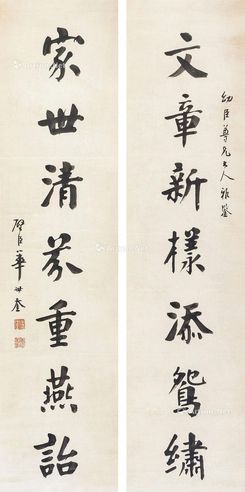 幼臣尊兄大人雅鉴
文章新樣添鴛繡
家世清芬重燕詒
璧臣華世奎